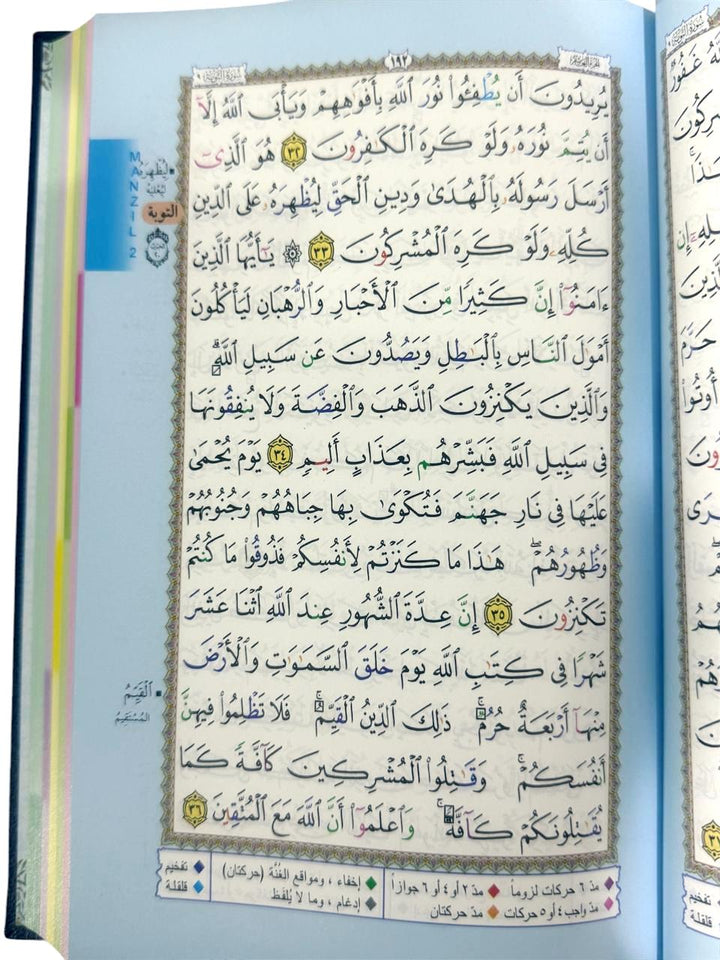 الجزء العاشر
١٩٢
سورة التوبة ٩
يُرِيدُونَ أَن يُطْفِـُٔوا۟ نُورَ ٱللَّهِ بِأَفْوَٰهِهِمْ وَيَأْبَى ٱللَّهُ إِلَّآ
أَن يُتِمَّ نُورَهُۥ وَلَوْ كَرِهَ ٱلْكَـٰفِرُونَ ٣٢ هُوَ ٱلَّذِىٓ
أَرْسَلَ رَسُولَهُۥ بِٱلْهُدَىٰ وَدِينِ ٱلْحَقِّ لِيُظْهِرَهُۥ عَلَى ٱلدِّينِ
كُلِّهِۦ وَلَوْ كَرِهَ ٱلْمُشْرِكُونَ ٣٣ ۞ يَـٰٓأَيُّهَا ٱلَّذِينَ
ءَامَنُوٓا۟ إِنَّ كَثِيرًا مِّنَ ٱلْأَحْبَارِ وَٱلرُّهْبَانِ لَيَأْكُلُونَ
أَمْوَٰلَ ٱلنَّاسِ بِٱلْبَـٰطِلِ وَيَصُدُّونَ عَن سَبِيلِ ٱللَّهِ ۗ
وَٱلَّذِينَ يَكْنِزُونَ ٱلذَّهَبَ وَٱلْفِضَّةَ وَلَا يُنفِقُونَهَا
فِى سَبِيلِ ٱللَّهِ فَبَشِّرْهُم بِعَذَابٍ أَلِيمٍ ٣٤ يَوْمَ يُحْمَىٰ
عَلَيْهَا فِى نَارِ جَهَنَّمَ فَتُكْوَىٰ بِهَا جِبَاهُهُمْ وَجُنُوبُهُمْ
وَظُهُورُهُمْ ۖ هَـٰذَا مَا كَنَزْتُمْ لِأَنفُسِكُمْ فَذُوقُوا۟ مَا كُنتُمْ
تَكْنِزُونَ ٣٥ إِنَّ عِدَّةَ ٱلشُّهُورِ عِندَ ٱللَّهِ ٱثْنَا عَشَرَ
شَهْرًا فِى كِتَـٰبِ ٱللَّهِ يَوْمَ خَلَقَ ٱلسَّمَـٰوَٰتِ وَٱلْأَرْضَ
مِنْهَآ أَرْبَعَةٌ حُرُمٌ ۚ ذَٰلِكَ ٱلدِّينُ ٱلْقَيِّمُ ۚ فَلَا تَظْلِمُوا۟ فِيهِنَّ
أَنفُسَكُمْ ۚ وَقَـٰتِلُوا۟ ٱلْمُشْرِكِينَ كَآفَّةً كَمَا
يُقَـٰتِلُونَكُمْ كَآفَّةً ۚ وَٱعْلَمُوٓا۟ أَنَّ ٱللَّهَ مَعَ ٱلْمُتَّقِينَ ٣٦
▪ لِيُظْهِرَهُ
لِيُعْلِيَهُ
التوبة
MANZIL 2
▪ ٱلْقَيِّمُ
المُسْتَقِيمُ
مدّ ٦ حركات لزوماً مدّ ٢ أو ٤ أو ٦ جوازاً إخفاء ، ومواقع الغُنَّة (حركتان) تفخيم
مدّ واجب ٤ أو ٥ حركات مدّ حركتان إدغام ، وما لا يُلفَظ قلقلة